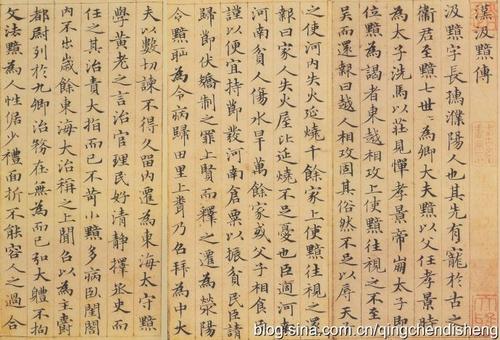 漢汲黯傳
汲黯字長孺濮陽人也其先有寵於古之
衛君至黯七世〻為卿大夫黯以父任孝景時
為太子洗馬以莊見憚孝景帝崩太子即
位黯為謁者東越相攻上使黯往視之不至
吳而還報曰越人相攻固其俗然不足以辱天
之使河內失火延燒千餘家上使黯往視之
報曰家人失火屋比延燒不足憂也臣過河南
河南貧人傷水旱萬餘家或父子相食臣
謹以便宜持節發河南倉粟以振貧民臣請
歸節伏矯制之罪上賢而釋之遷為滎陽
令黯恥為令病歸田里上聞乃召拜為中大
夫以數切諫不得久留內遷為東海太守黯
學黃老之言治官理民好清靜擇丞史而
任之其治責大指而已不苛小黯多病臥閨閤
內不出歲餘東海大治稱之上聞召以為主爵
都尉列於九卿治務在無為而已弘大體不拘
文法黯為人性倨少禮面折不能容人之過合
blog.sina.com.cn/qingchendisheng